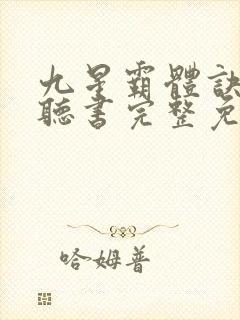 九星霸體訣
聽書完整免
哈姆普